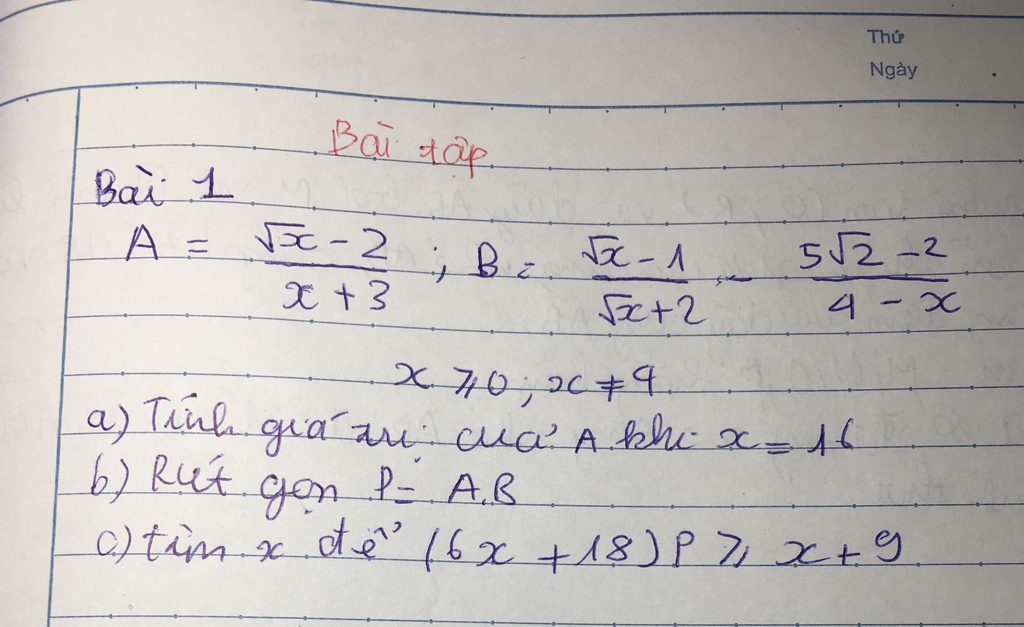 Thứ
Ngày
Bài tập
Bài 1
A = \frac{\sqrt{x} - 2}{x + 3} ; B = \frac{\sqrt{x} - 1}{\sqrt{x} + 2} - \frac{5\sqrt{2} - 2}{4 - x}
x ⩾ 0 ; x ≠ 4
a) Tính giá trị của A khi x = 16
b) Rút gọn P = A.B
c) tìm x để (6x + 18) P ⩾ x + 9